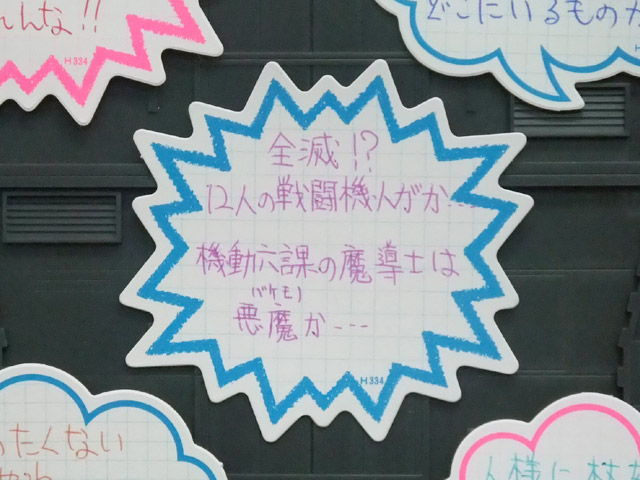 れんな!!
H334
どこにいるものか
全滅!?
12人の戦闘機人がか…
機動六課の魔導士は
バケモノ
悪魔か---
H334
ったくない
人様に杖